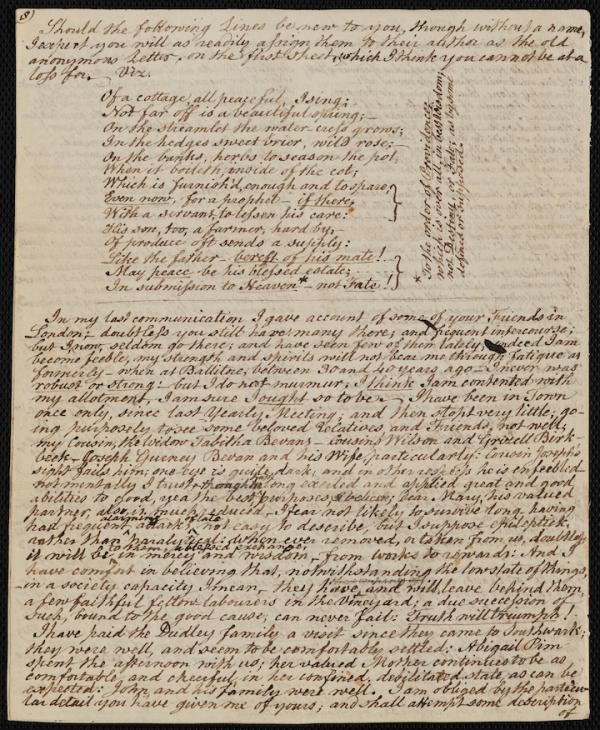 (3)
Should the following Lines be new to you, though without a name,
I expect you will as readily assign them to their author as the old
anonymous Letter, on the first sheet, which I think you cannot be at a
loss for. Viz.
Of a cottage, all peaceful, I sing;
Not far off is a beautiful spring;—
On the streamlet the water-cress grows;
In the hedges sweet brier, wild rose;—
On the banks, herbs to season the pot,
When it boileth, inside of the cot;
Which is furnish'd, enough and to spare,
Even now, for a prophet — if there,
With a servant, to lessen his care:
His son, too, a farmer, hard by,—
Of produce oft sends a supply:
Like the father — bereft of his mate!
May peace be his blessed estate;
In submission to Heaven* — not Fate!
* To the order of Providence,
which is over all, in best wisdom;
not Destiny, or Fate; as by some
defined or supposed.
In my last communication I gave account of some of your Friends in
London; doubtless you still have many there, and frequent intercourse;
but I now, seldom go there; and have seen few of them lately. Indeed I am
become feeble; my strength and spirits will not bear me through fatigue as
formerly — when at Ballitore, between 30 and 40 years ago — I never was
robust or strong: but I do not murmur; I think I am contented with
my allotment, I am sure I ought so to be. I have been in Town
once only, since last Yearly Meeting; and then stopt very little; go-
ing purposely to see some beloved Relatives and Friends, not well;
my Cousin, the widow Tabitha Bevans — cousins Wilson and Grizell Birk-
beck — Joseph Gurney Bevan and his Wife, particularly: Cousin Joseph's
sight fails him; one eye is quite dark; and in other respects he is enfeebled
not mentally I trust, though long exerted and applied great and good
abilities to good, yea the best purposes I believe; dear Mary, his valued
partner, also is much reduced, I fear not likely to survive long — having
had frequent alarming attacks of late not easy to describe, but I suppose Epileptick,
rather than paralytical: when ever removed, or taken from us, doubtless
it will be to them a blessed exchange, in mercy and wisdom, from works to rewards: And I
have comfort in believing that, notwithstanding the low state of things,
in a society capacity I mean, they have, and will leave behind them,
a few faithful fellow labourers in the Vineyard; a due succession of
such, bound to the good cause, can never fail: Truth will triumph!
I have paid the Dudley family a visit since they came to Southwark;
they were well, and seem to be comfortably settled: Abigail Pim
spent the afternoon with us; her valued Mother continues to be as
comfortable, and cheerful, in her confined, debilitated state, as can be
expected: John, and his family were well. I am obliged by the particu-
lar detail you have given me of yours; and shall attempt some description
of